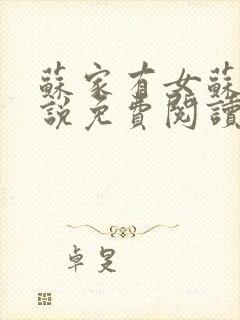 蘇家有女蘇
說免費閱讀
卓旻